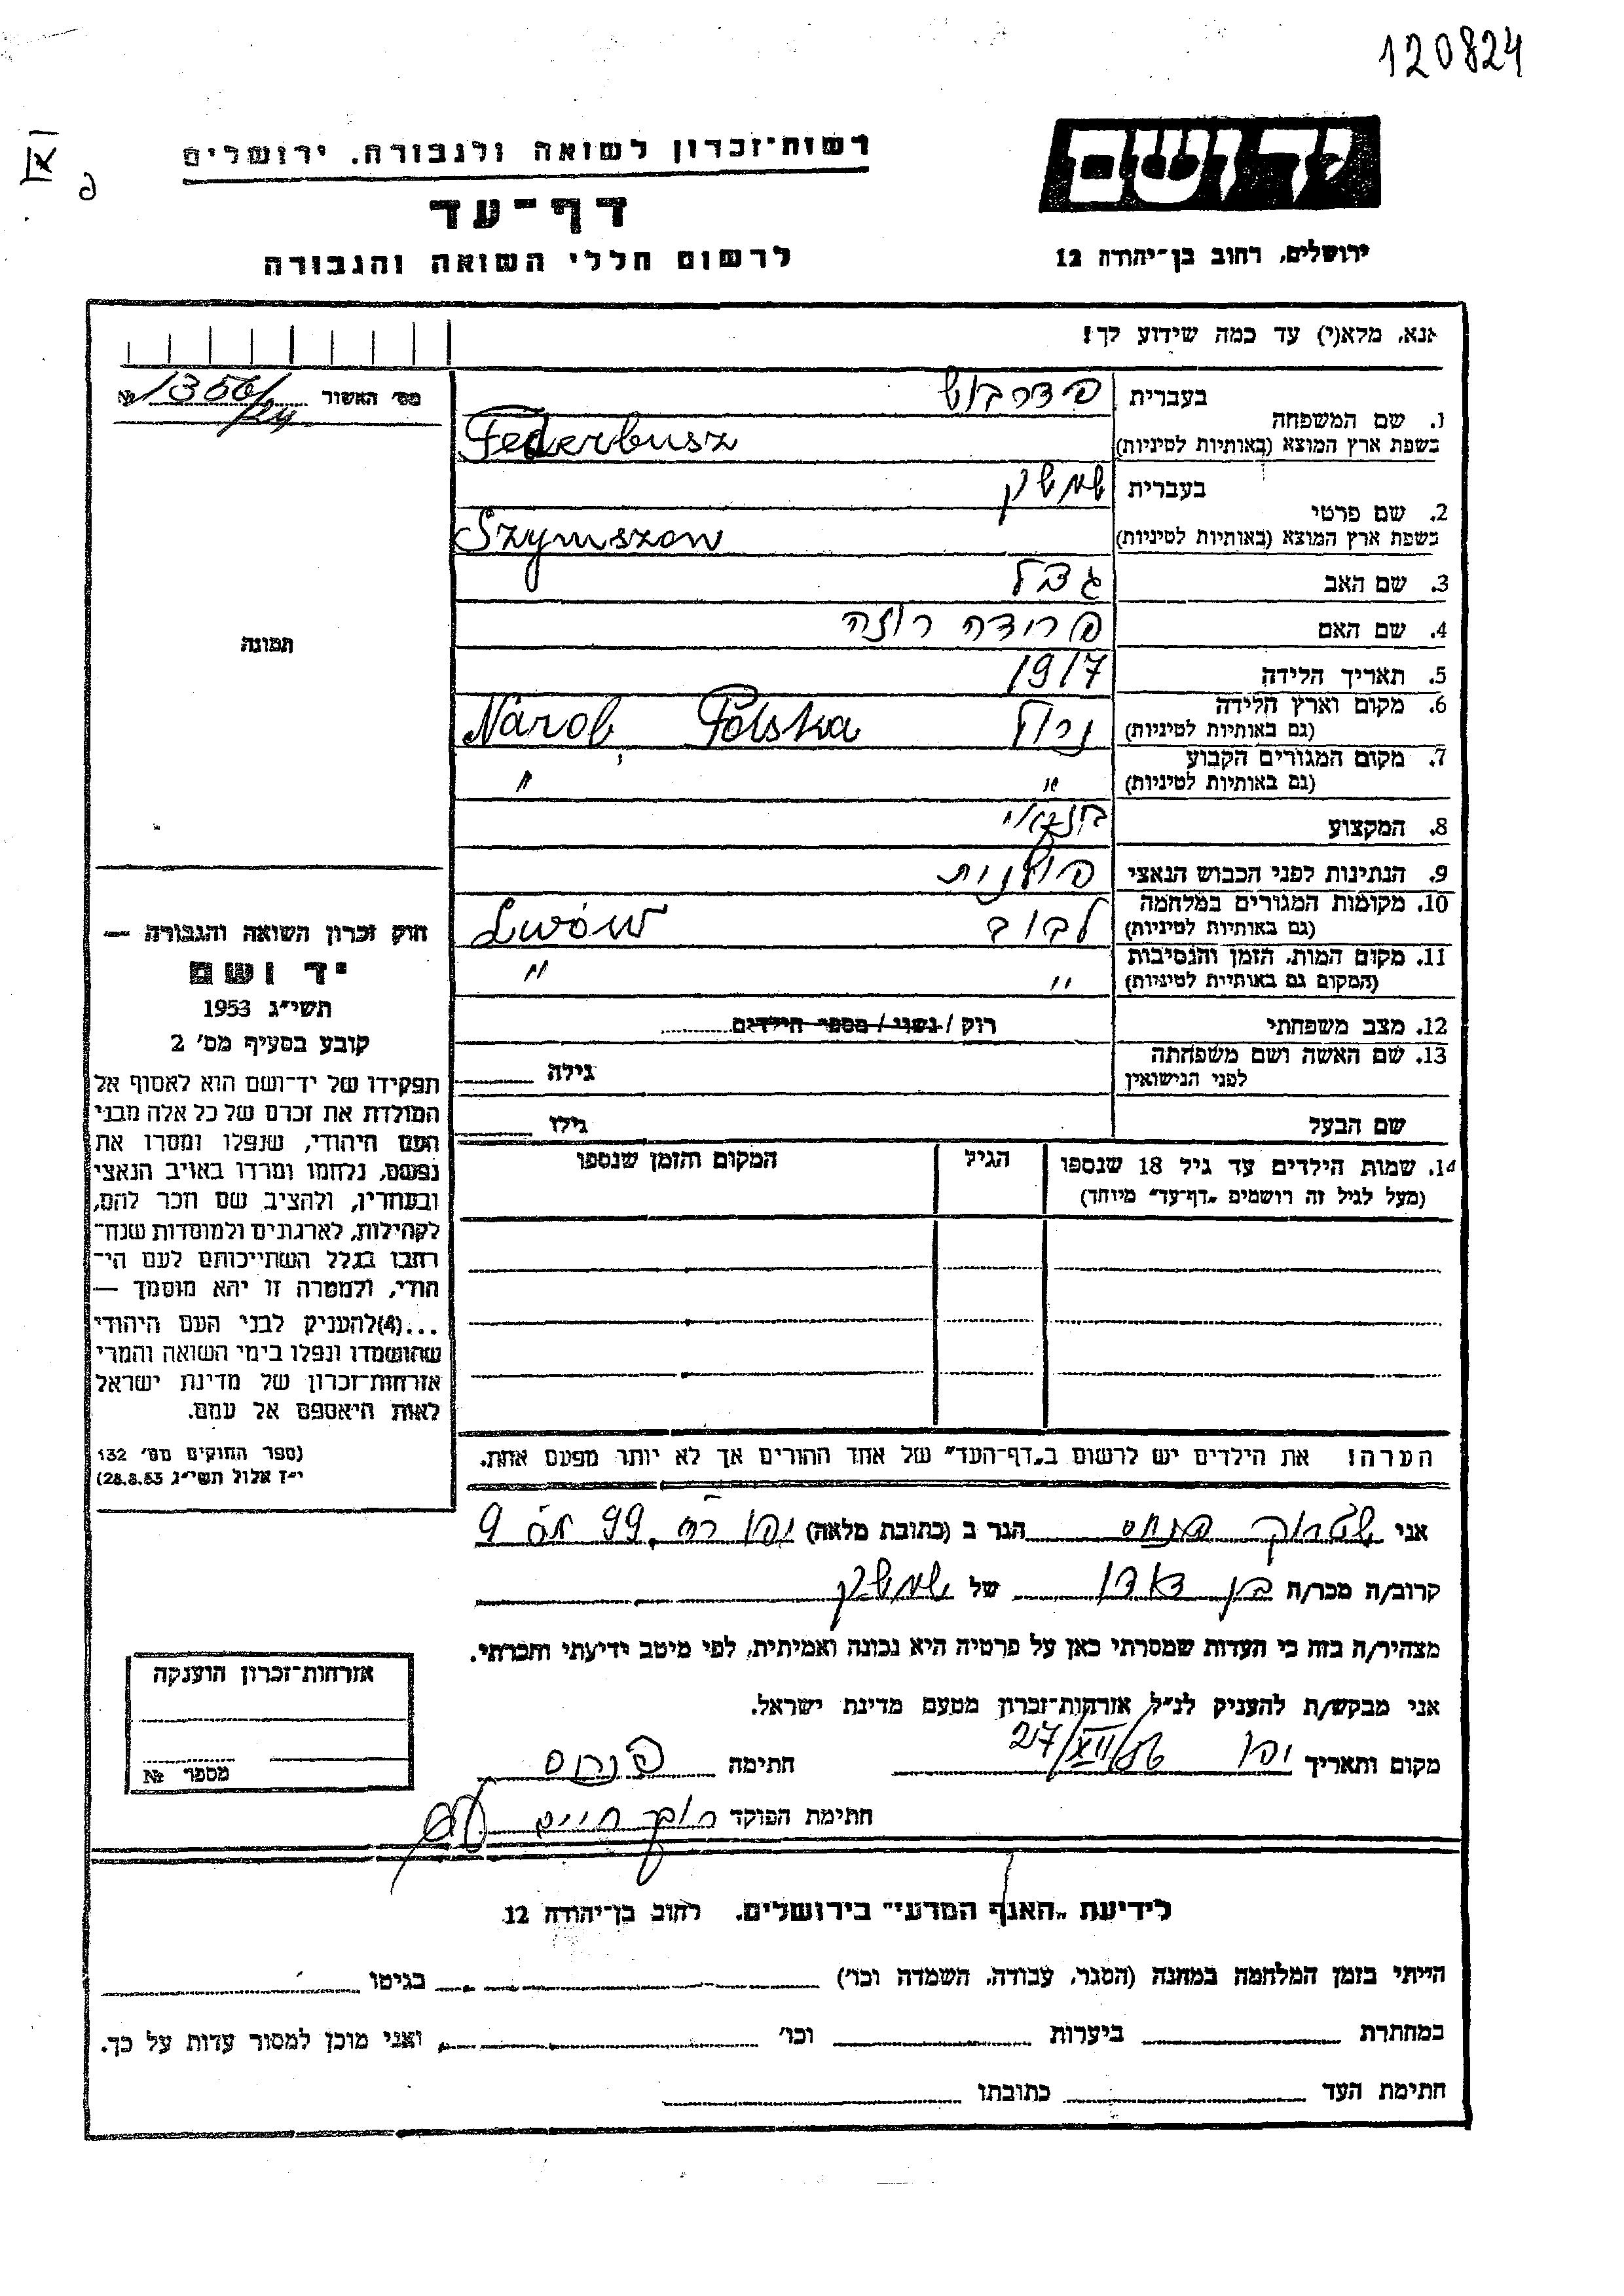 120824
רשות־זכרון לשואה ולגבורה, ירושלים
יד ושם
דף־עד
ירושלים, רחוב בן־יהודה 12
לרשום חללי השואה והגבורה
אנא, מלא(י) עד כמה שידוע לך!
מס׳ האשור № 1356/24
בעברית פדרבוש
1. שם המשפחה
בשפת ארץ המוצא (באותיות לטיניות) Federbusz
בעברית
2. שם פרטי
בשפת ארץ המוצא (באותיות לטיניות) Szymszon
3. שם האב
4. שם האם פרידה רוזה
5. תאריך הלידה 1917
6. מקום וארץ הלידה
(גם באותיות לטיניות) נרול Narol, Polska
7. מקום המגורים הקבוע
(גם באותיות לטיניות) " "
8. המקצוע
9. הנתינות לפני הכבוש הנאצי פולנית
10. מקומות המגורים במלחמה
(גם באותיות לטיניות) לבוב Lwów
11. מקום המות, הזמן והנסיבות
(המקום גם באותיות לטיניות) " "
12. מצב משפחתי רווק / נשוי / מספר הילדים
13. שם האשה ושם משפחתה
לפני הנישואין גילה
שם הבעל גילו
14. שמות הילדים עד גיל 18 שנספו הגיל המקום והזמן שנספו
(מעל לגיל זה רושמים „דף־עד״ מיוחד)
תמונה
חוק זכרון השואה והגבורה —
יד ושם
תשי״ג 1953
קובע בסעיף מס׳ 2
תפקידו של יד־ושם הוא לאסוף אל
המולדת את זכרם של כל אלה מבני
העם היהודי, שנפלו ומסרו את
נפשם, נלחמו ומרדו באויב הנאצי
ובעוזריו, ולהציב שם וזכר להם,
לקהילות, לארגונים ולמוסדות שנח־
רבו בגלל השתייכותם לעם הי־
הודי, ולמטרה זו יהא מוסמך —
...(4)להעניק לבני העם היהודי
שהושמדו ונפלו בימי השואה והמרי
אזרחות־זכרון של מדינת ישראל
לאות היאספם אל עמם.
(ספר החוקים מס׳ 132
י״ז אלול תשי״ג 28.8.53)
הערה! את הילדים יש לרשום ב„דף־העד״ של אחד ההורים אך לא יותר מפעם אחת.
אני פנחס הגר ב (כתובת מלאה) יפו
קרוב/ה מכר/ה בן דודו של
מצהיר/ה בזה כי העדות שמסרתי כאן על פרטיה היא נכונה ואמיתית, לפי מיטב ידיעתי והכרתי.
אני מבקש/ת להעניק לנ״ל אזרחות־זכרון מטעם מדינת ישראל.
מקום ותאריך יפו 27/XII/56 חתימה פנחס
חתימת הפוקד חיים
אזרחות־זכרון הוענקה
מספר №
לידיעת „האגף המדעי״ בירושלים, רחוב בן־יהודה 12
הייתי בזמן המלחמה במחנה (הסגר, עבודה, השמדה וכו׳) בגיטו
במחתרת ביערות וכו׳ ואני מוכן למסור עדות על כך.
חתימת העד כתובתו